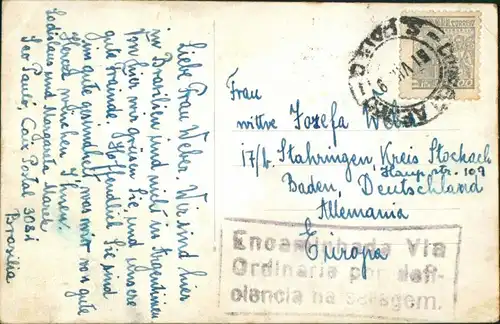 Liebe Frau Weber. Wir sind hier
in Brasilien und nicht in Argentinien
Von hier wir grüsen Sie und unsere
gute Freunde. Hoffendlich Sie sind
gute gesindheit was mir von gute
Herzen wünchen Ihnen.
Ladislaus und Margareta Marek
Seo Paulo Caix. Postal 3081
Brasilia
S. PAULO
CORREIO
Frau
wittve Jozefa We
17/b. Stahringen, Kreis Stockach
Haup str. 109
Baden, Deutschland
Allemania
Eiropa
Encaminhada Via
Ordinaria por defi-
ciencia na selagem.